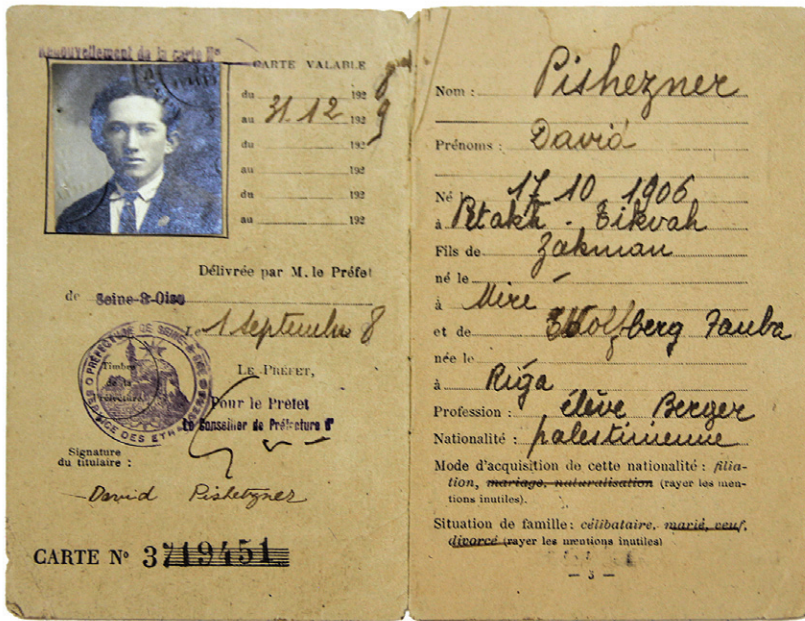 Renouvellement de la carte Nº
CARTE VALABLE
du 192 8
au 31.12 192 9
du 192
au 192
du 192
au 192
Délivrée par M. le Préfet
de Seine-&-Oise
Le 1 Septembre 8
PRÉFECTURE DE SEINE-&-OISE
SERVICE DES ETRANGERS
Timbre
de la
Préfecture
LE PRÉFET,
Pour le Préfet
Le Conseiller de Préfecture
Signature
du titulaire :
David Pishetzner
CARTE Nº 3719451
Nom : Pishezner
Prénoms : David
Né le 17 10 1906
à Petakh-Tikvah
Fils de Zakman
né le
à Miré
et de Wolfberg Tauba
née le
à Riga
Profession : élève Berger
Nationalité : palestinienne
Mode d'acquisition de cette nationalité : filia-
tion, mariage, naturalisation (rayer les men-
tions inutiles).
Situation de famille : célibataire, marié, veuf,
divorcé (rayer les mentions inutiles)
— 3 —